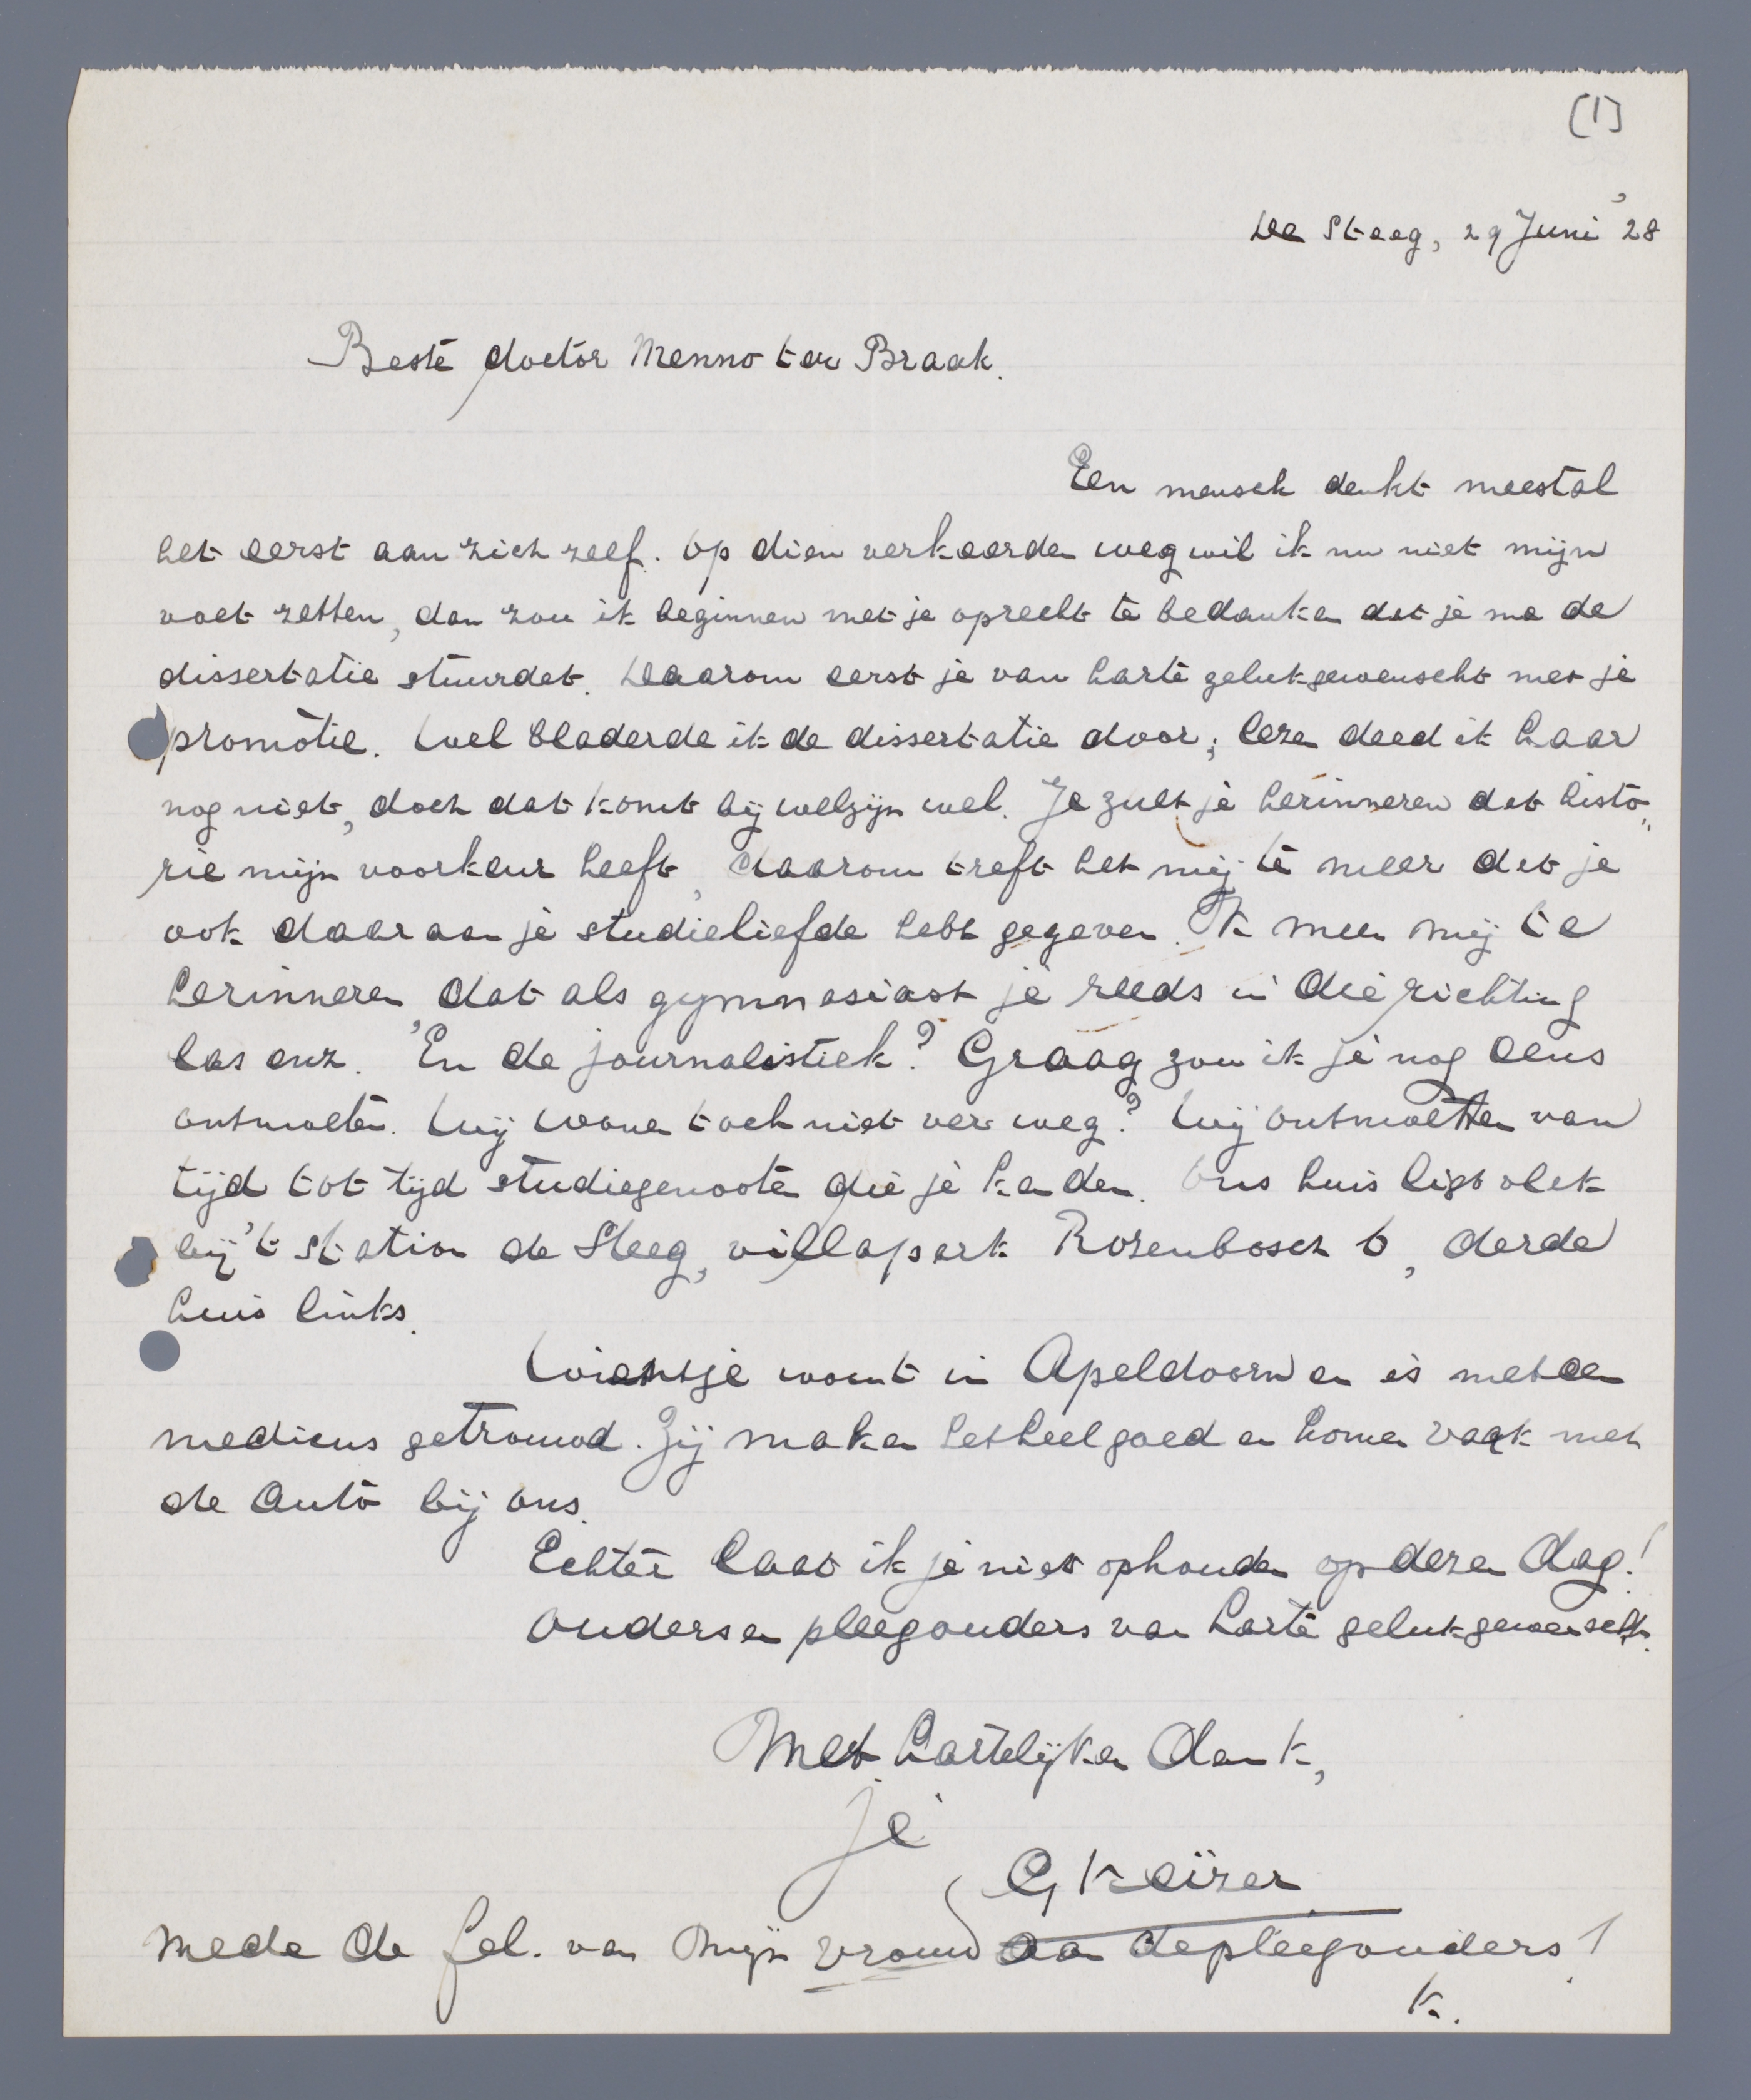 [1]
De Steeg, 29 Juni '28
Beste doctor Menno ter Braak.
Een mensch denkt meestal
het eerst aan zich zelf. Op dien verkeerden weg wil ik nu niet mijn
voet zetten, dan zou ik beginnen met je oprecht te bedanken dat je me de
dissertatie stuurdet. Daarom eerst je van harte gelukgewenscht met je
promotie. Wel bladerde ik de dissertatie door; lezen deed ik haar
nog niet, doch dat komt bij welzijn wel. Je zult je herinneren dat histo„
rie mijn voorkeur heeft, daarom treft het mij te meer dat je
ook daaraan je studieliefde hebt gegeven. Ik meen mij te
herinneren, dat als gymnasiast je reeds in die richting
las enz. En de journalistiek? Graag zou ik je nog eens
ontmoeten. Wij wonen toch niet ver weg? Wij ontmoetten van
tijd tot tijd studiegenooten die je kenden. Ons huis ligt vlak
bij 't station de Steeg, villapark Rozenbosch 6, derde
huis links.
Wientje woont in Apeldoorn en is met een
medicus getrouwd. Zij maken het heel goed en komen vaak met
de auto bij ons.
Echter laat ik je niet ophouden op dezen dag!
Ouders en pleegouders van harte gelukgewenscht.
Met hartelijken dank,
je
G Keizer
Mede de fel. van mijn vrouw aan de pleegouders!
K.